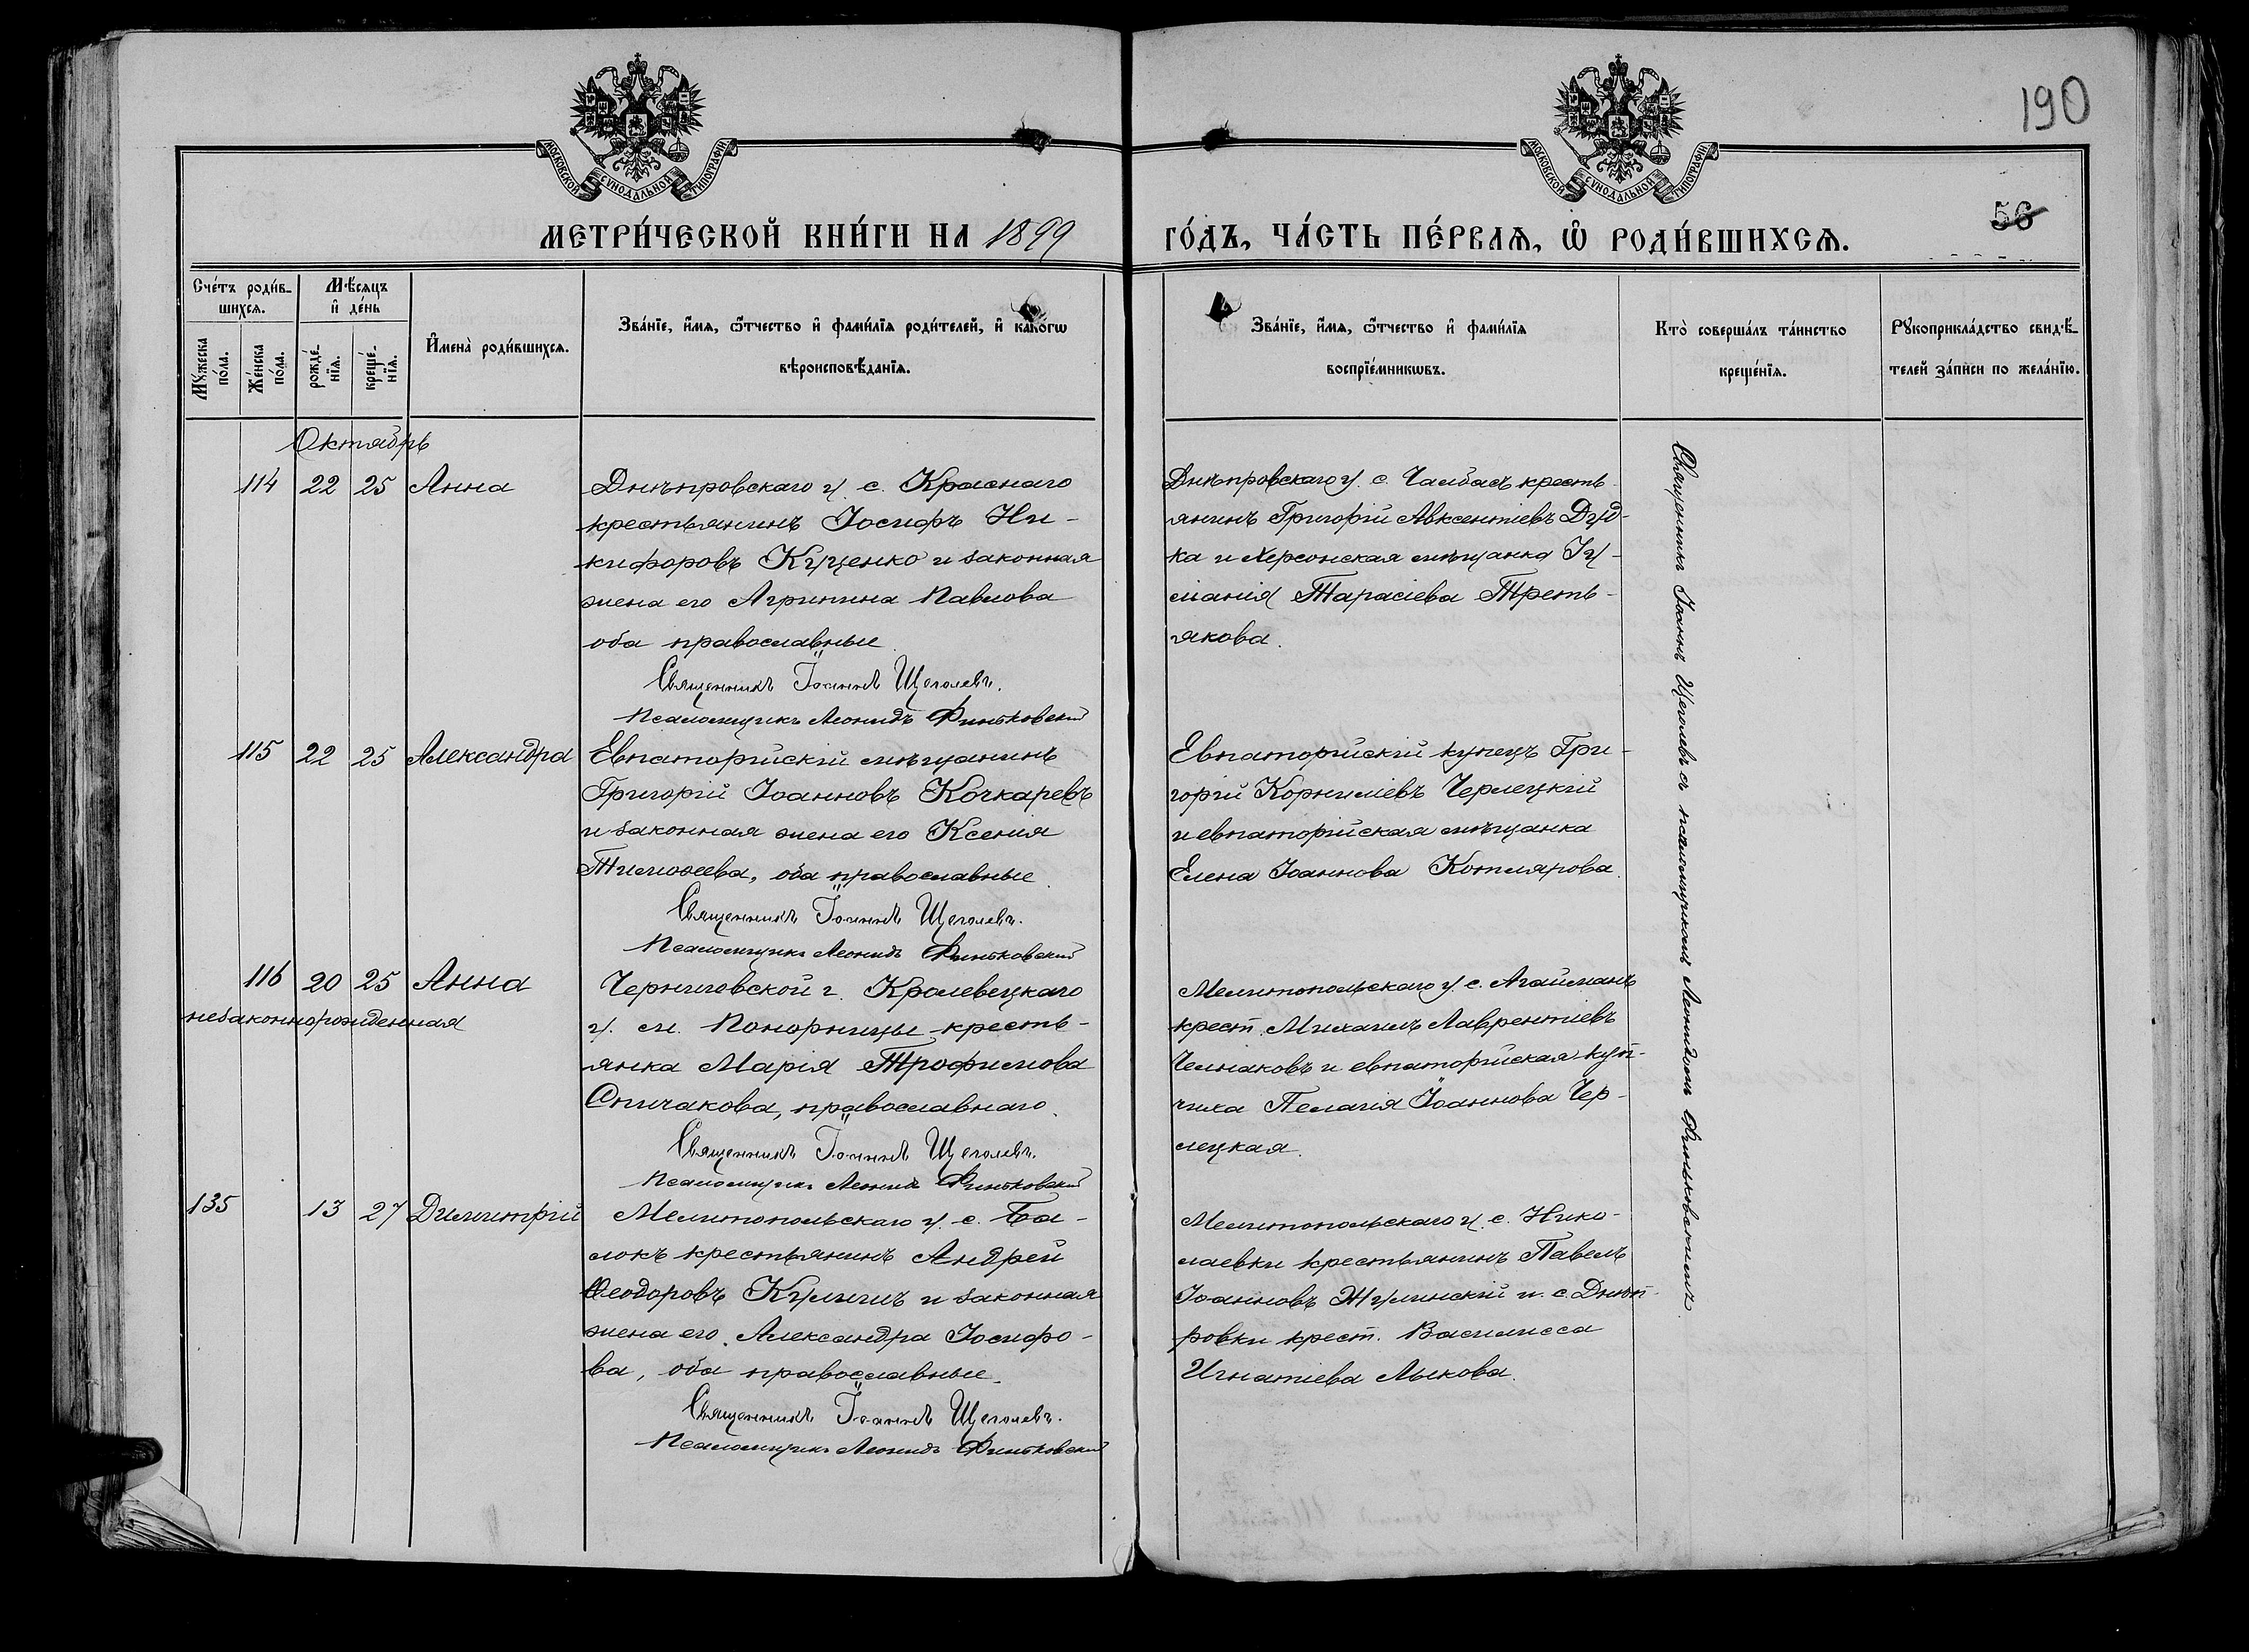 190
МОСКОВСКОЙ СѴНОДАЛЬНОЙ ТИПОГРАФІИ
МОСКОВСКОЙ СѴНОДАЛЬНОЙ ТИПОГРАФІИ
56
МЕТРИ́ЧЕСКОЙ КНИ́ГИ НА 1899
ГО́ДЪ, ЧА́СТЬ ПЕ́РВАѦ, Ѡ҆ РОДИ́ВШИХСѦ.
Сче́тъ роди́в-
шихсѧ.
Мꙋ́жеска по́ла.
Же́нска по́ла.
Мѣ́сяцъ
и҆ де́нь
рожде́-
нїѧ.
креще́-
нїѧ.
И҆мена̀ роди́вшихсѧ.
Зва́нїе, и҆́мѧ, ѻ҆́тчество и҆ фами́лїѧ роди́телей, и҆ како́гѡ
вѣроисповѣ́данїѧ.
Зва́нїе, и҆́мѧ, ѻ҆́тчество и҆ фами́лїѧ
воспрїе́мникѡвъ.
Кто̀ соверша́лъ та́инство
креще́нїѧ.
Рꙋкоприкла́дство свидѣ́-
телей за́писи по жела́нїю.
Октябрь
114 22 25 Анна
Днѣпровскаго у. с. Краснаго
крестьянинъ Іосифъ Ни-
кифоровъ Куценко и законная
жена его Агрипина Павлова
оба православные.
Священникъ Іоаннъ Щеголевъ.
Псаломщикъ Леонидъ Финьковский
Днѣпровскаго у. с. Чалбасъ кресть-
янинъ Григорій Авксентіевъ Дуд-
ка и Херсонская мѣщанка Іу-
лианія Тарасіева Треть-
якова.
115 22 25 Александра
Евпаторійскій мѣщанинъ
Григорій Іоанновъ Кочкаревъ
и законная жена его Ксенія
Тимоѳеева, оба православные.
Священникъ Іоаннъ Щеголевъ.
Псаломщикъ Леонидъ Финьковский
Евпаторійскій купецъ Гри-
горій Корниліевъ Черлецкій
и евпаторійская мѣщанка
Елена Іоаннова Котлярова.
116 20 25 Анна
незаконнорожденная
Черниговской г. Кролевецкаго
у. м. Понорницы кресть-
янка Марія Трофимова
Спичакова, православнаго.
Священникъ Іоаннъ Щеголевъ.
Псаломщикъ Леонидъ Финьковский
Мелитопольскаго у. с. Агайманъ
крест. Михаилъ Лаврентіевъ
и евпаторійская куп-
чиха Пелагія Іоаннова Чер-
лецкая.
135 13 27 Димитрій
Мелитопольскаго у. с. Ба-
локъ крестьянинъ Андрей
Ѳеодоровъ Кулишъ и законная
жена его Александра Іосифо-
ва, оба православные.
Священникъ Іоаннъ Щеголевъ.
Псаломщикъ Леонидъ Финьковский
Мелитопольскаго у. с. Нико-
лаевки крестьянинъ Павелъ
Іоанновъ Жулинскій и с. Днѣп-
ровки крест. Василисса
Игнатіева Лыкова.
Священникъ Іоаннъ Щеголевъ съ псаломщикомъ Леонидомъ Финьковскимъ.